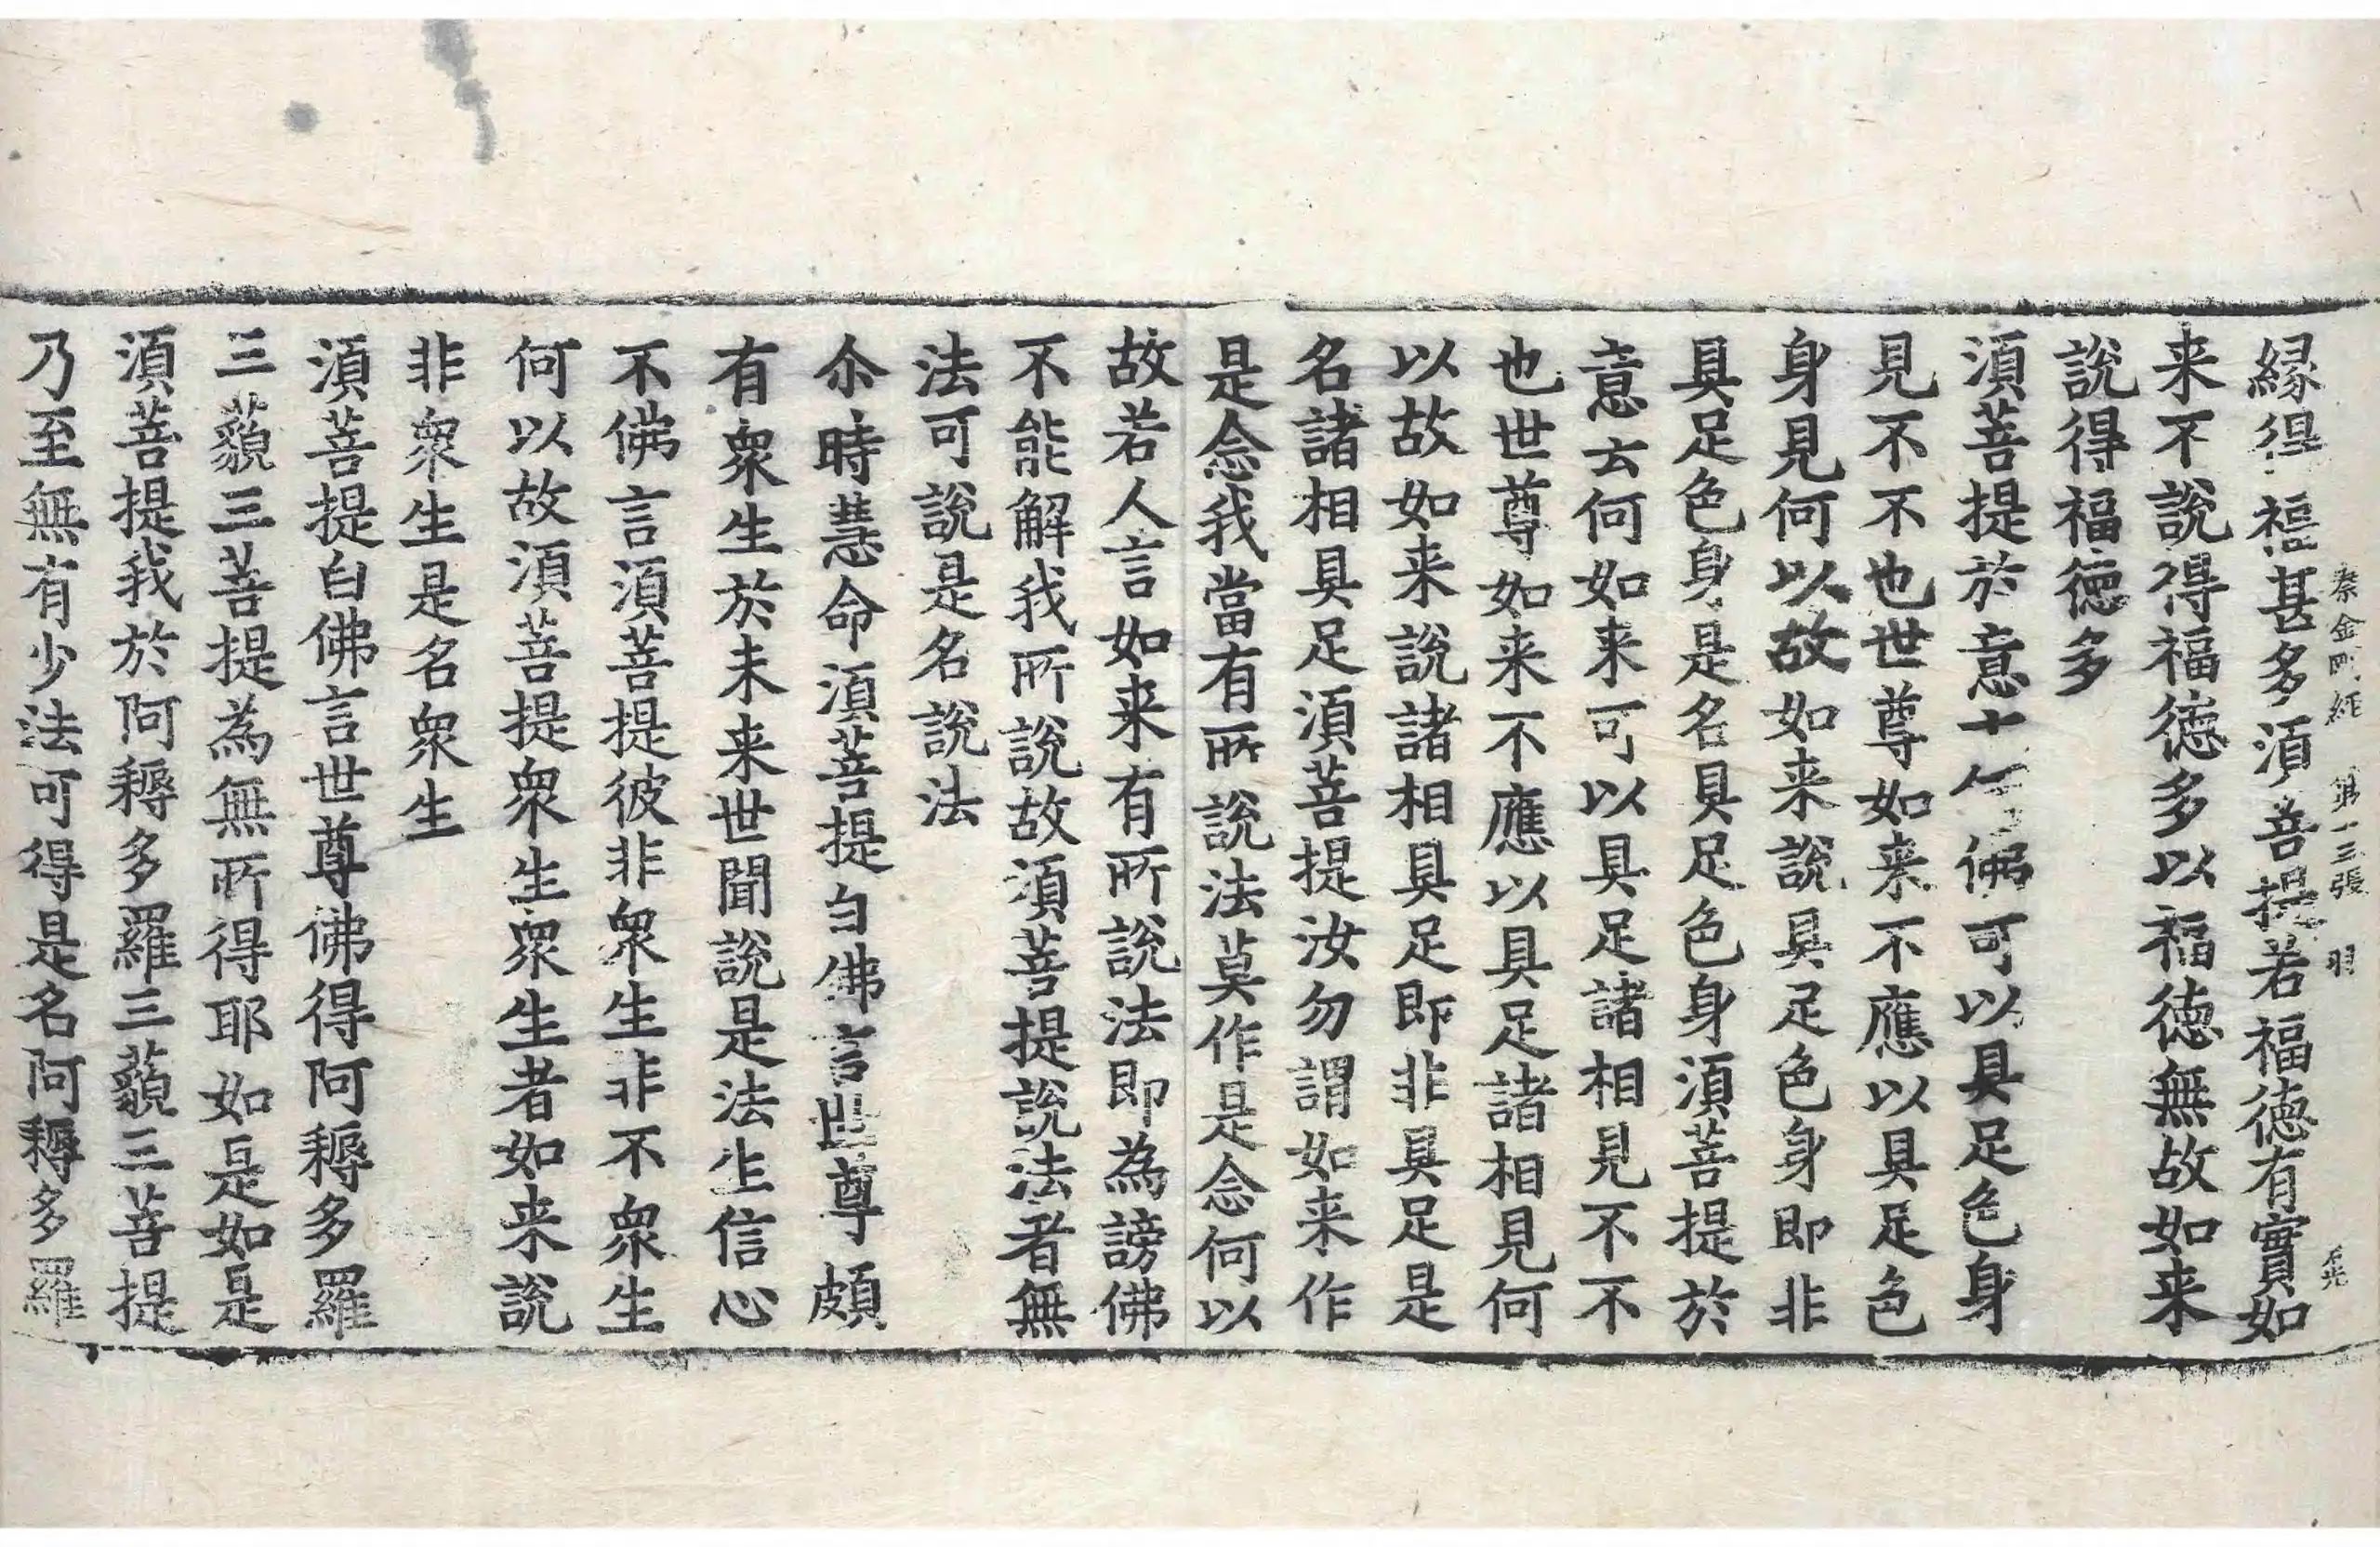 秦金剛經 第十三張 羽
緣得福甚多須菩提若福德有實如
来不說得福德多以福德無故如来
說得福德多
須菩提於意云何佛可以具足色身
見不不也世尊如来不應以具足色
身見何以故如来說具足色身即非
具足色身是名具足色身須菩提於
意云何如来可以具足諸相見不不
也世尊如来不應以具足諸相見何
以故如来說諸相具足即非具足是
名諸相具足須菩提汝勿謂如来作
是念我當有所說法莫作是念何以
故若人言如来有所說法即為謗佛
不能解我所說故須菩提說法者無
法可說是名說法
尒時慧命須菩提白佛言世尊頗
有衆生於未来世聞說是法生信心
不佛言須菩提彼非衆生非不衆生
何以故須菩提衆生衆生者如来說
非衆生是名衆生
須菩提白佛言世尊佛得阿耨多羅
三藐三菩提為無所得耶如是如是
須菩提我於阿耨多羅三藐三菩提
乃至無有少法可得是名阿耨多羅